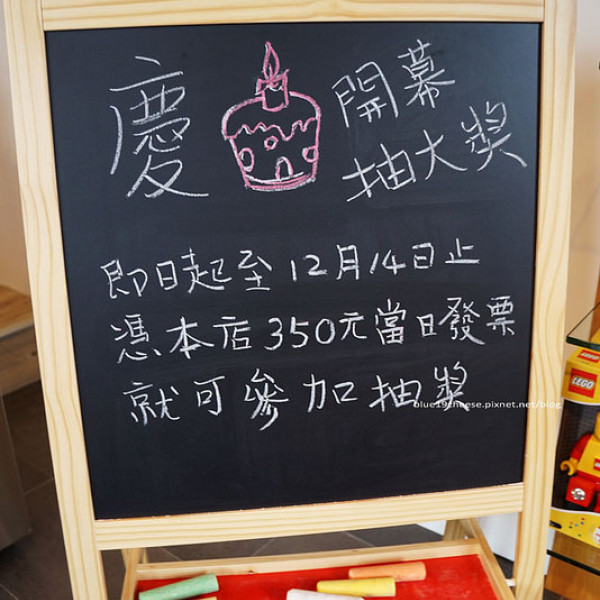 慶 開幕
抽大獎
即日起至12月14日止
憑本店350元當日發票
就可參加抽獎
blue19cheese.pixnet.net/blog
LEGO
LEGO